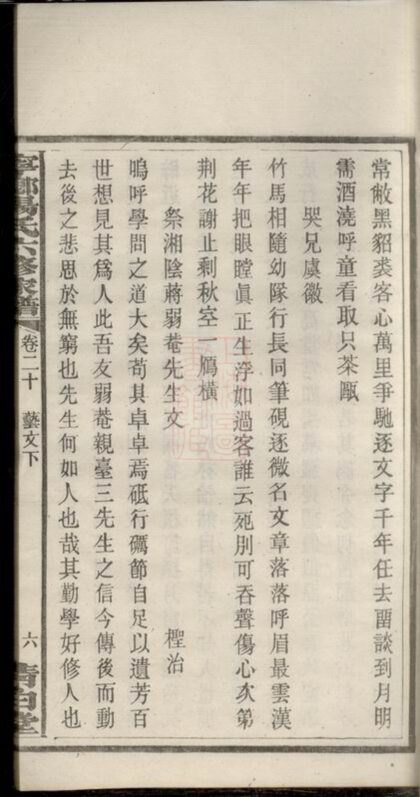 常敝黑貂裘客心萬里爭馳逐文字千年任去畱談到月明
需酒澆呼童看取只茶甌
哭兄虞徽
竹馬相隨幼隊行長同筆硯逐微名文章落落呼眉最雲漢
年年把眼瞠眞正生浮如過客誰云死別可吞聲傷心次第
荆花謝止剩秋空一鴈橫
祭湘陰蔣弱菴先生文 檉治
嗚呼學問之道大矣苟其卓卓焉砥行礪節自足以遺芳百
世想見其爲人此吾友弱菴親臺三先生之信今傳後而動
去後之悲思於無窮也先生何如人也哉其勤學好修人也
寧鄉楊氏六修家譜 卷二十 藝文下 六 清白堂